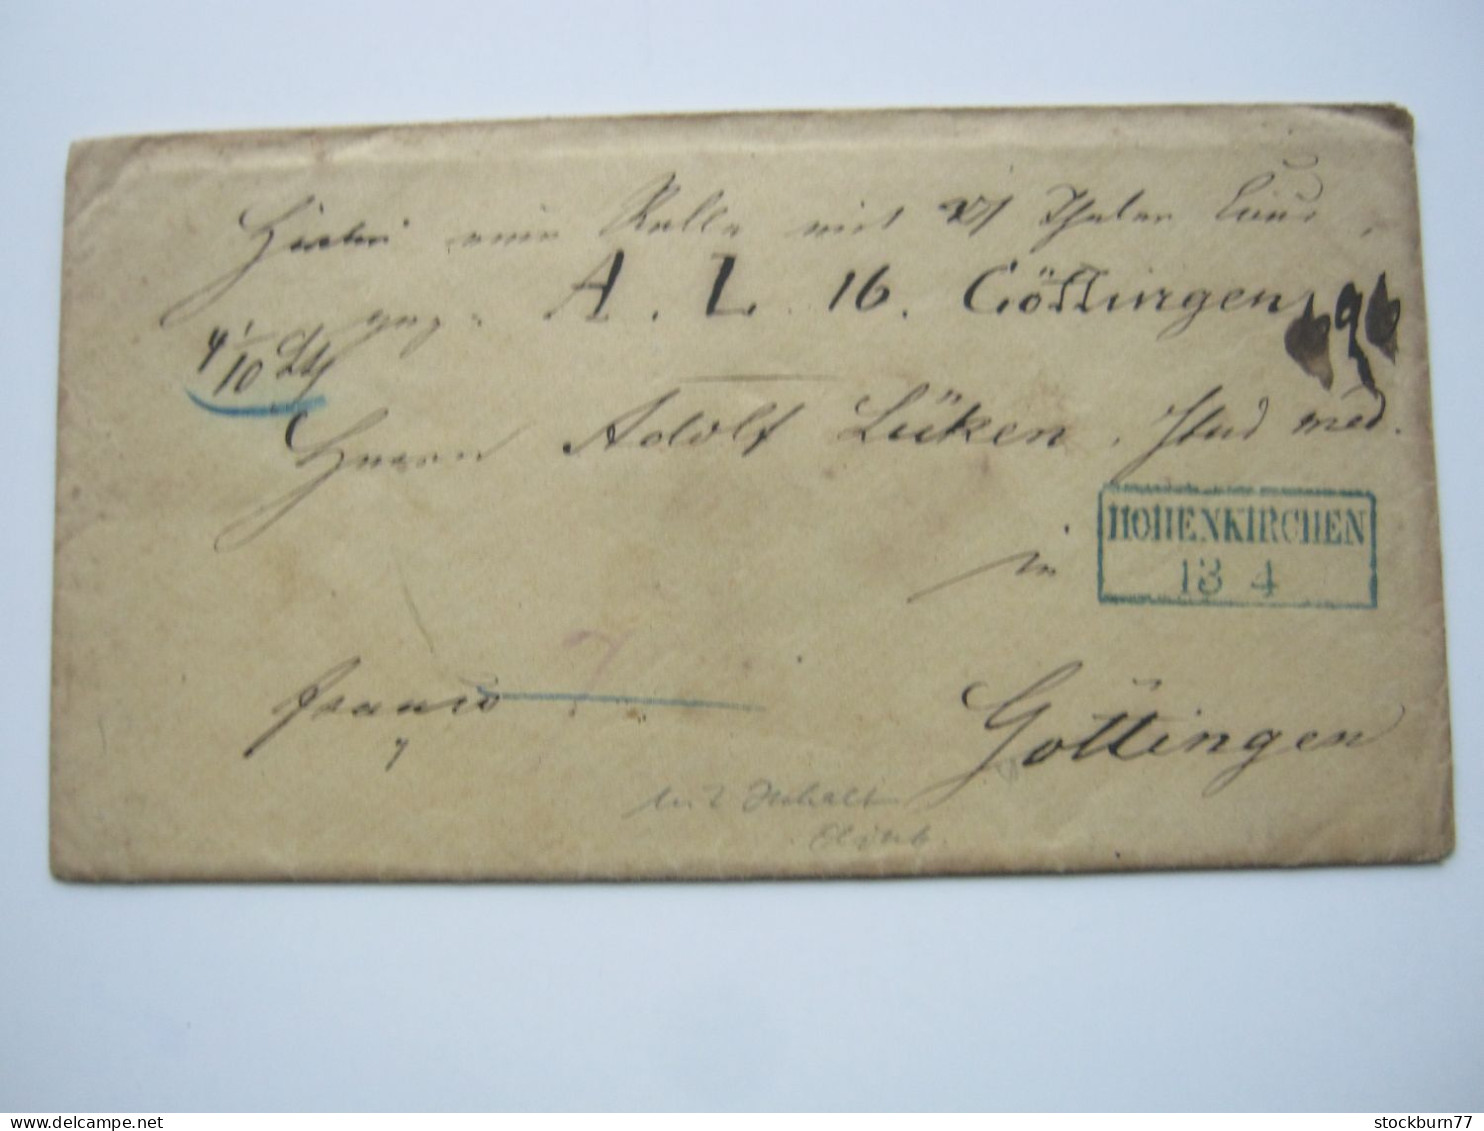 Hierbei eine Rolle mit Thaler
gez. A. L. 16. Göttingen
4 1/10
Herrn Adolf Lüken, Stud med.
HOHENKIRCHEN
13 4
in
franco
Göttingen
mit Inhalt
stockburn77